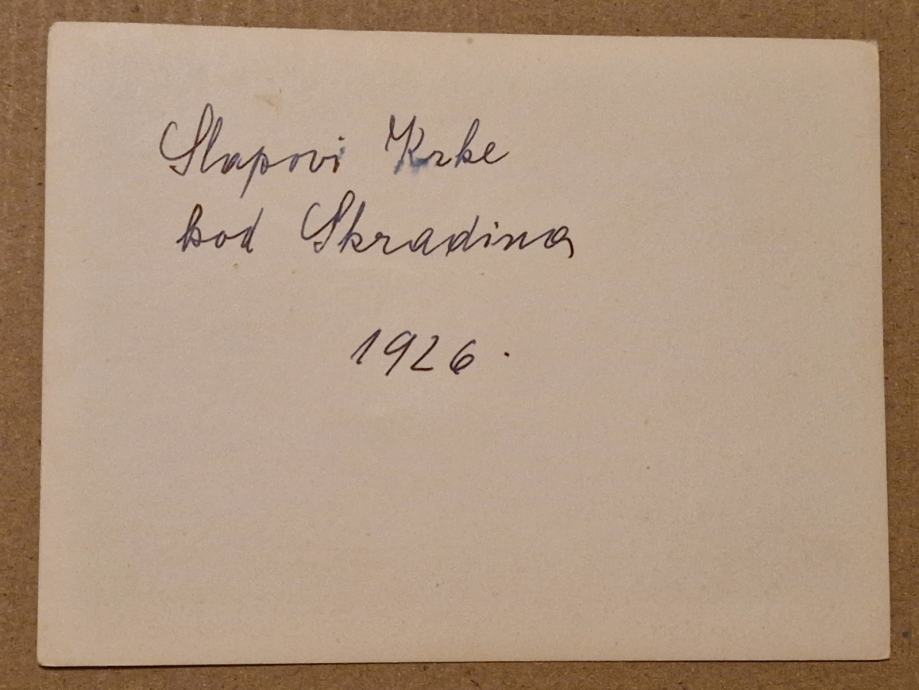 Slapovi Krke
kod Skradina
1926.